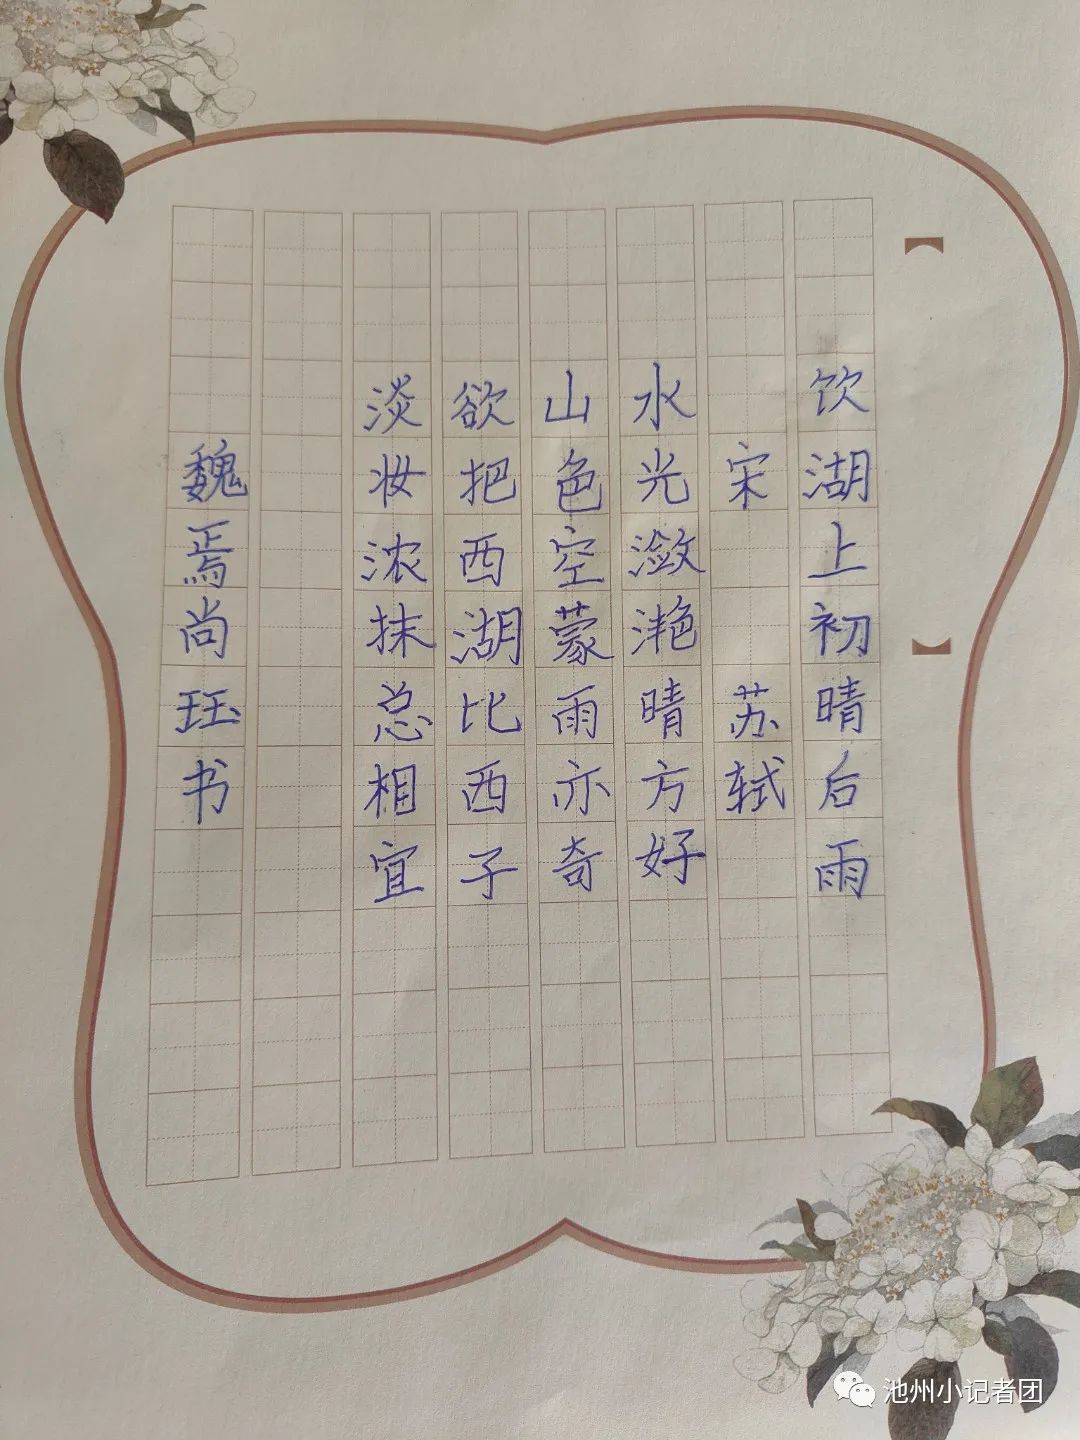 【 】
饮湖上初晴后雨
宋 苏轼
水光潋滟晴方好
山色空蒙雨亦奇
欲把西湖比西子
淡妆浓抹总相宜
魏焉尚珏书
池州小记者团